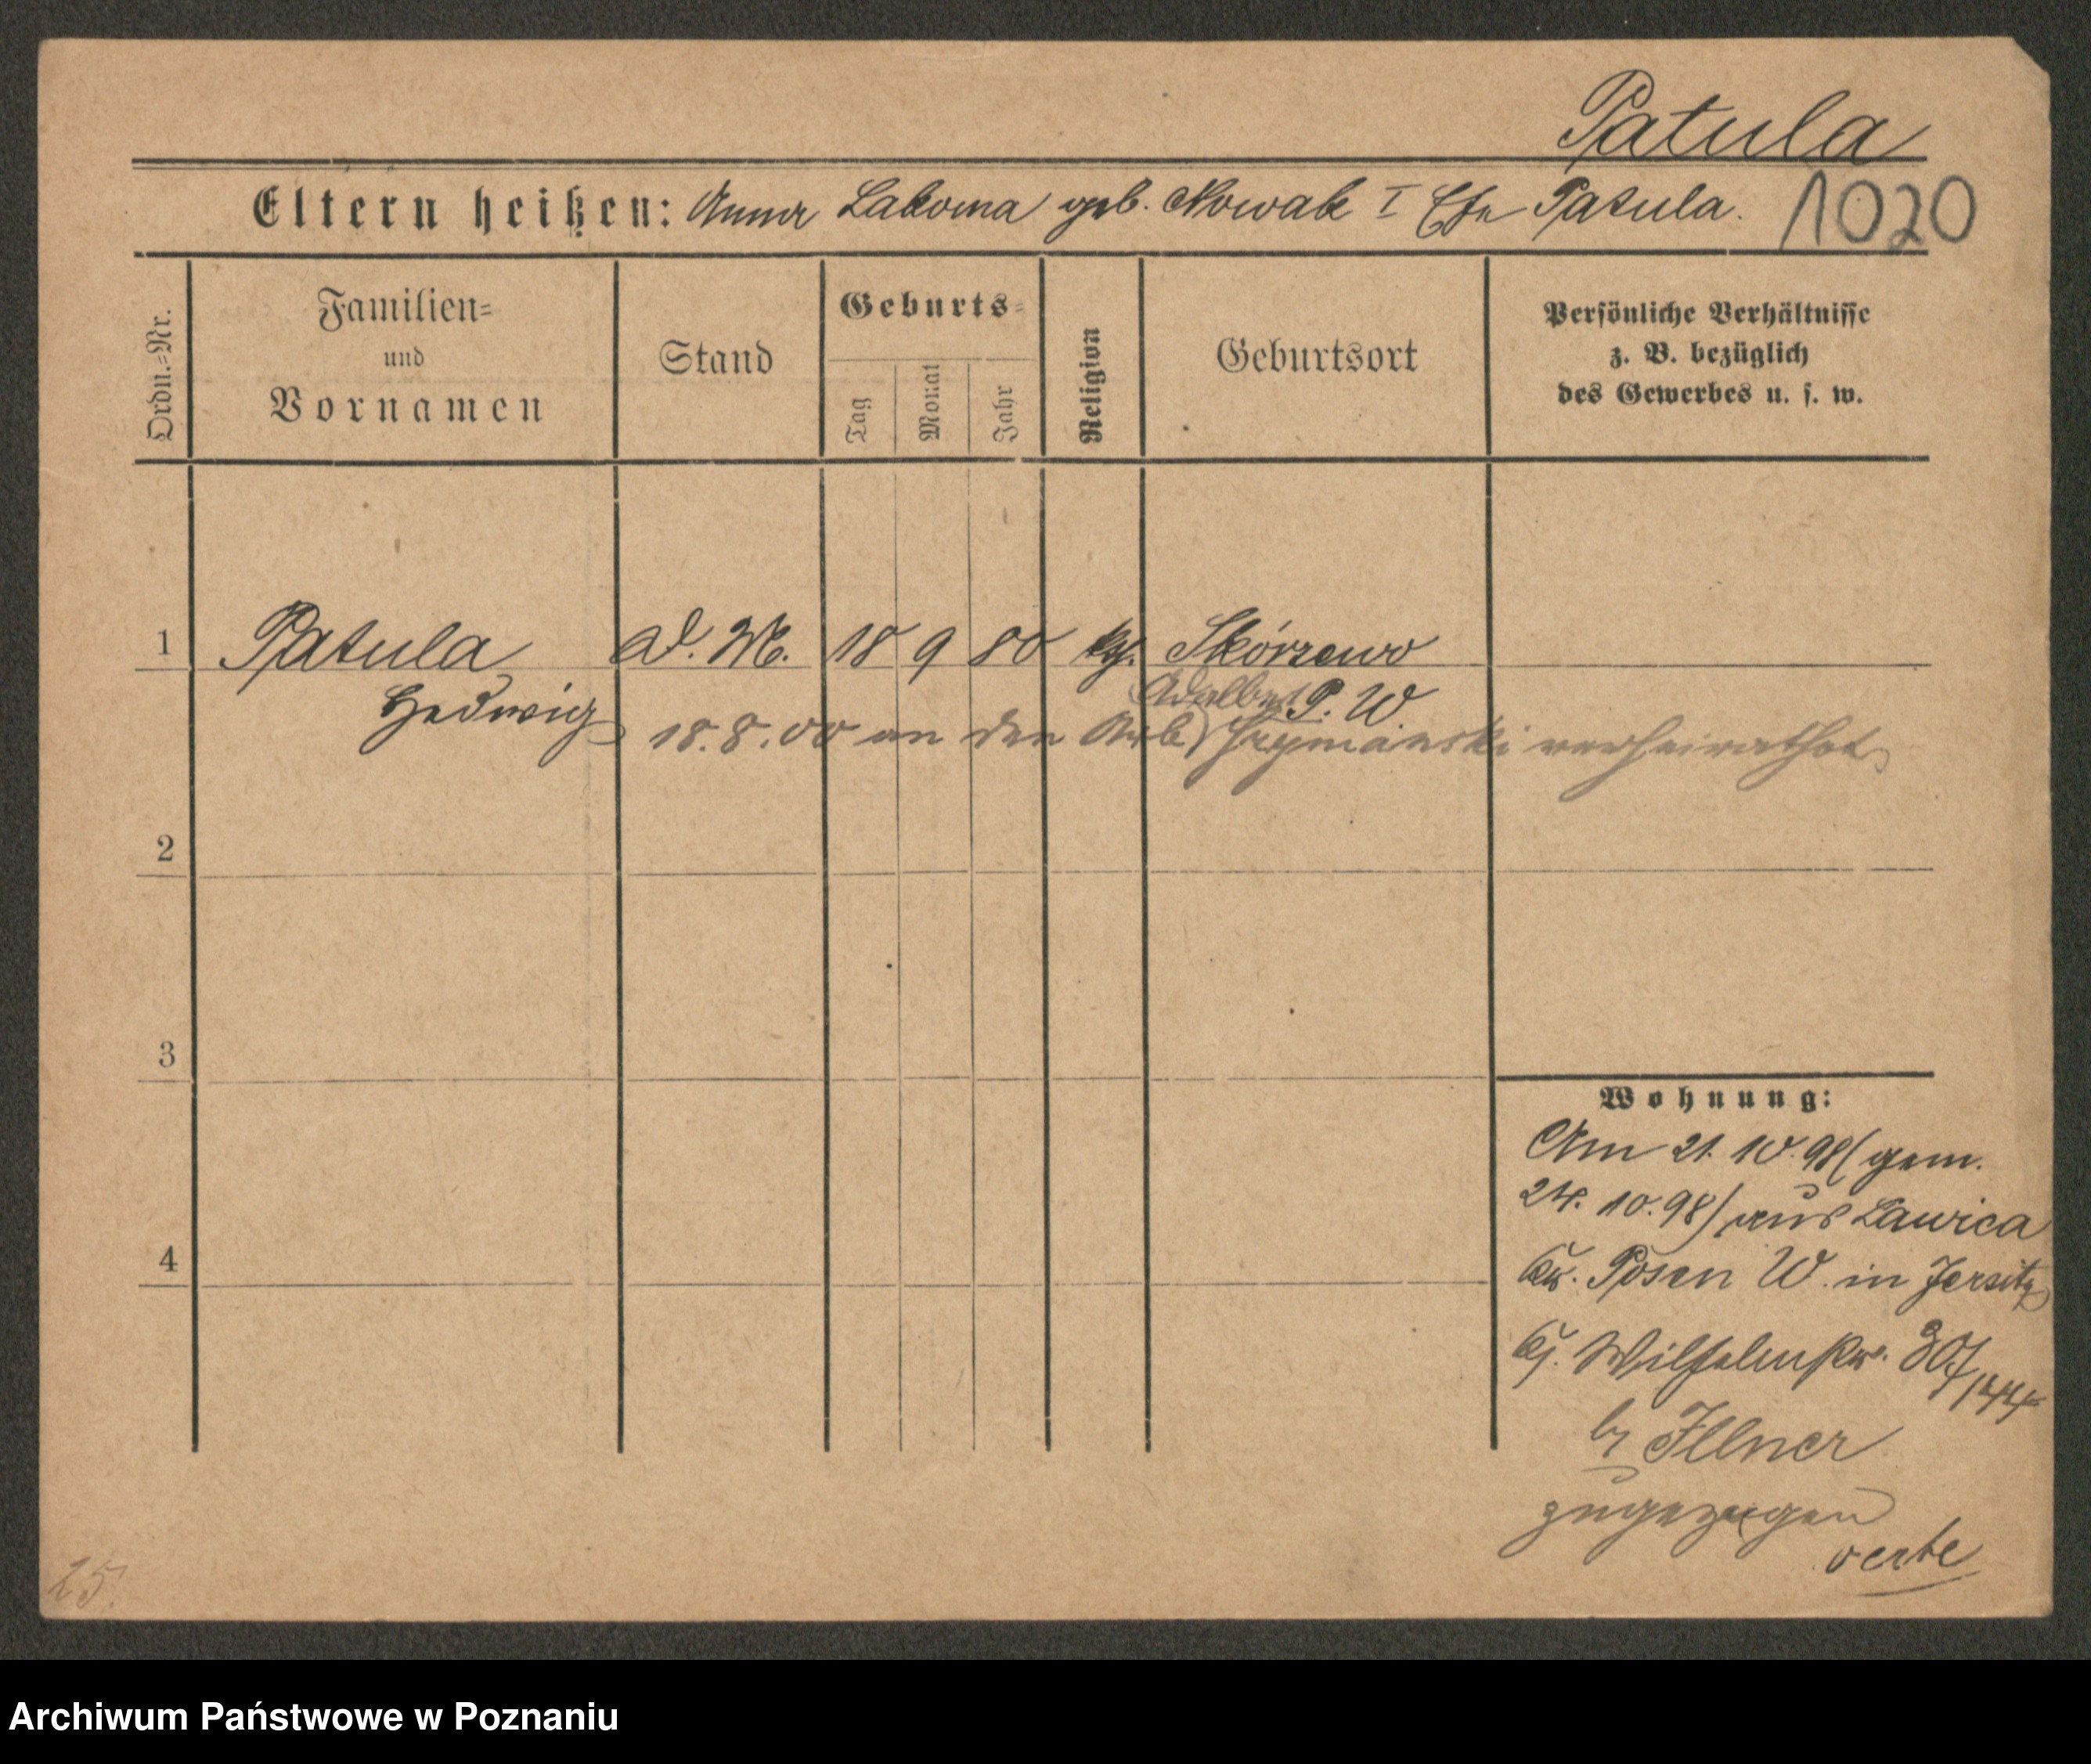 Patula
Eltern heißen: Anna Lakoma geb. Nowak I Ehe Patula.
1020
Ordn.=Nr.
Familien=
und
Vornamen
Stand
Geburts=
Tag
Monat
Jahr
Religion
Geburtsort
Persönliche Verhältnisse
z. B. bezüglich
des Gewerbes u. s. w.
1 Patula D. M. 18 9 80 kg. Skórzewo
Hedwig
Adalbert P. W.
18.8.00 an den Arb. Szymanski verheirathet
2
3
4
Wohnung:
Am 21. 10. 98 (gem.
24. 10. 98) aus Lawica
Kr. Posen W. in Jersitz
Wilhelmstr. 30/
b/ Illner
zugezogen
verte
25.
Archiwum Państwowe w Poznaniu